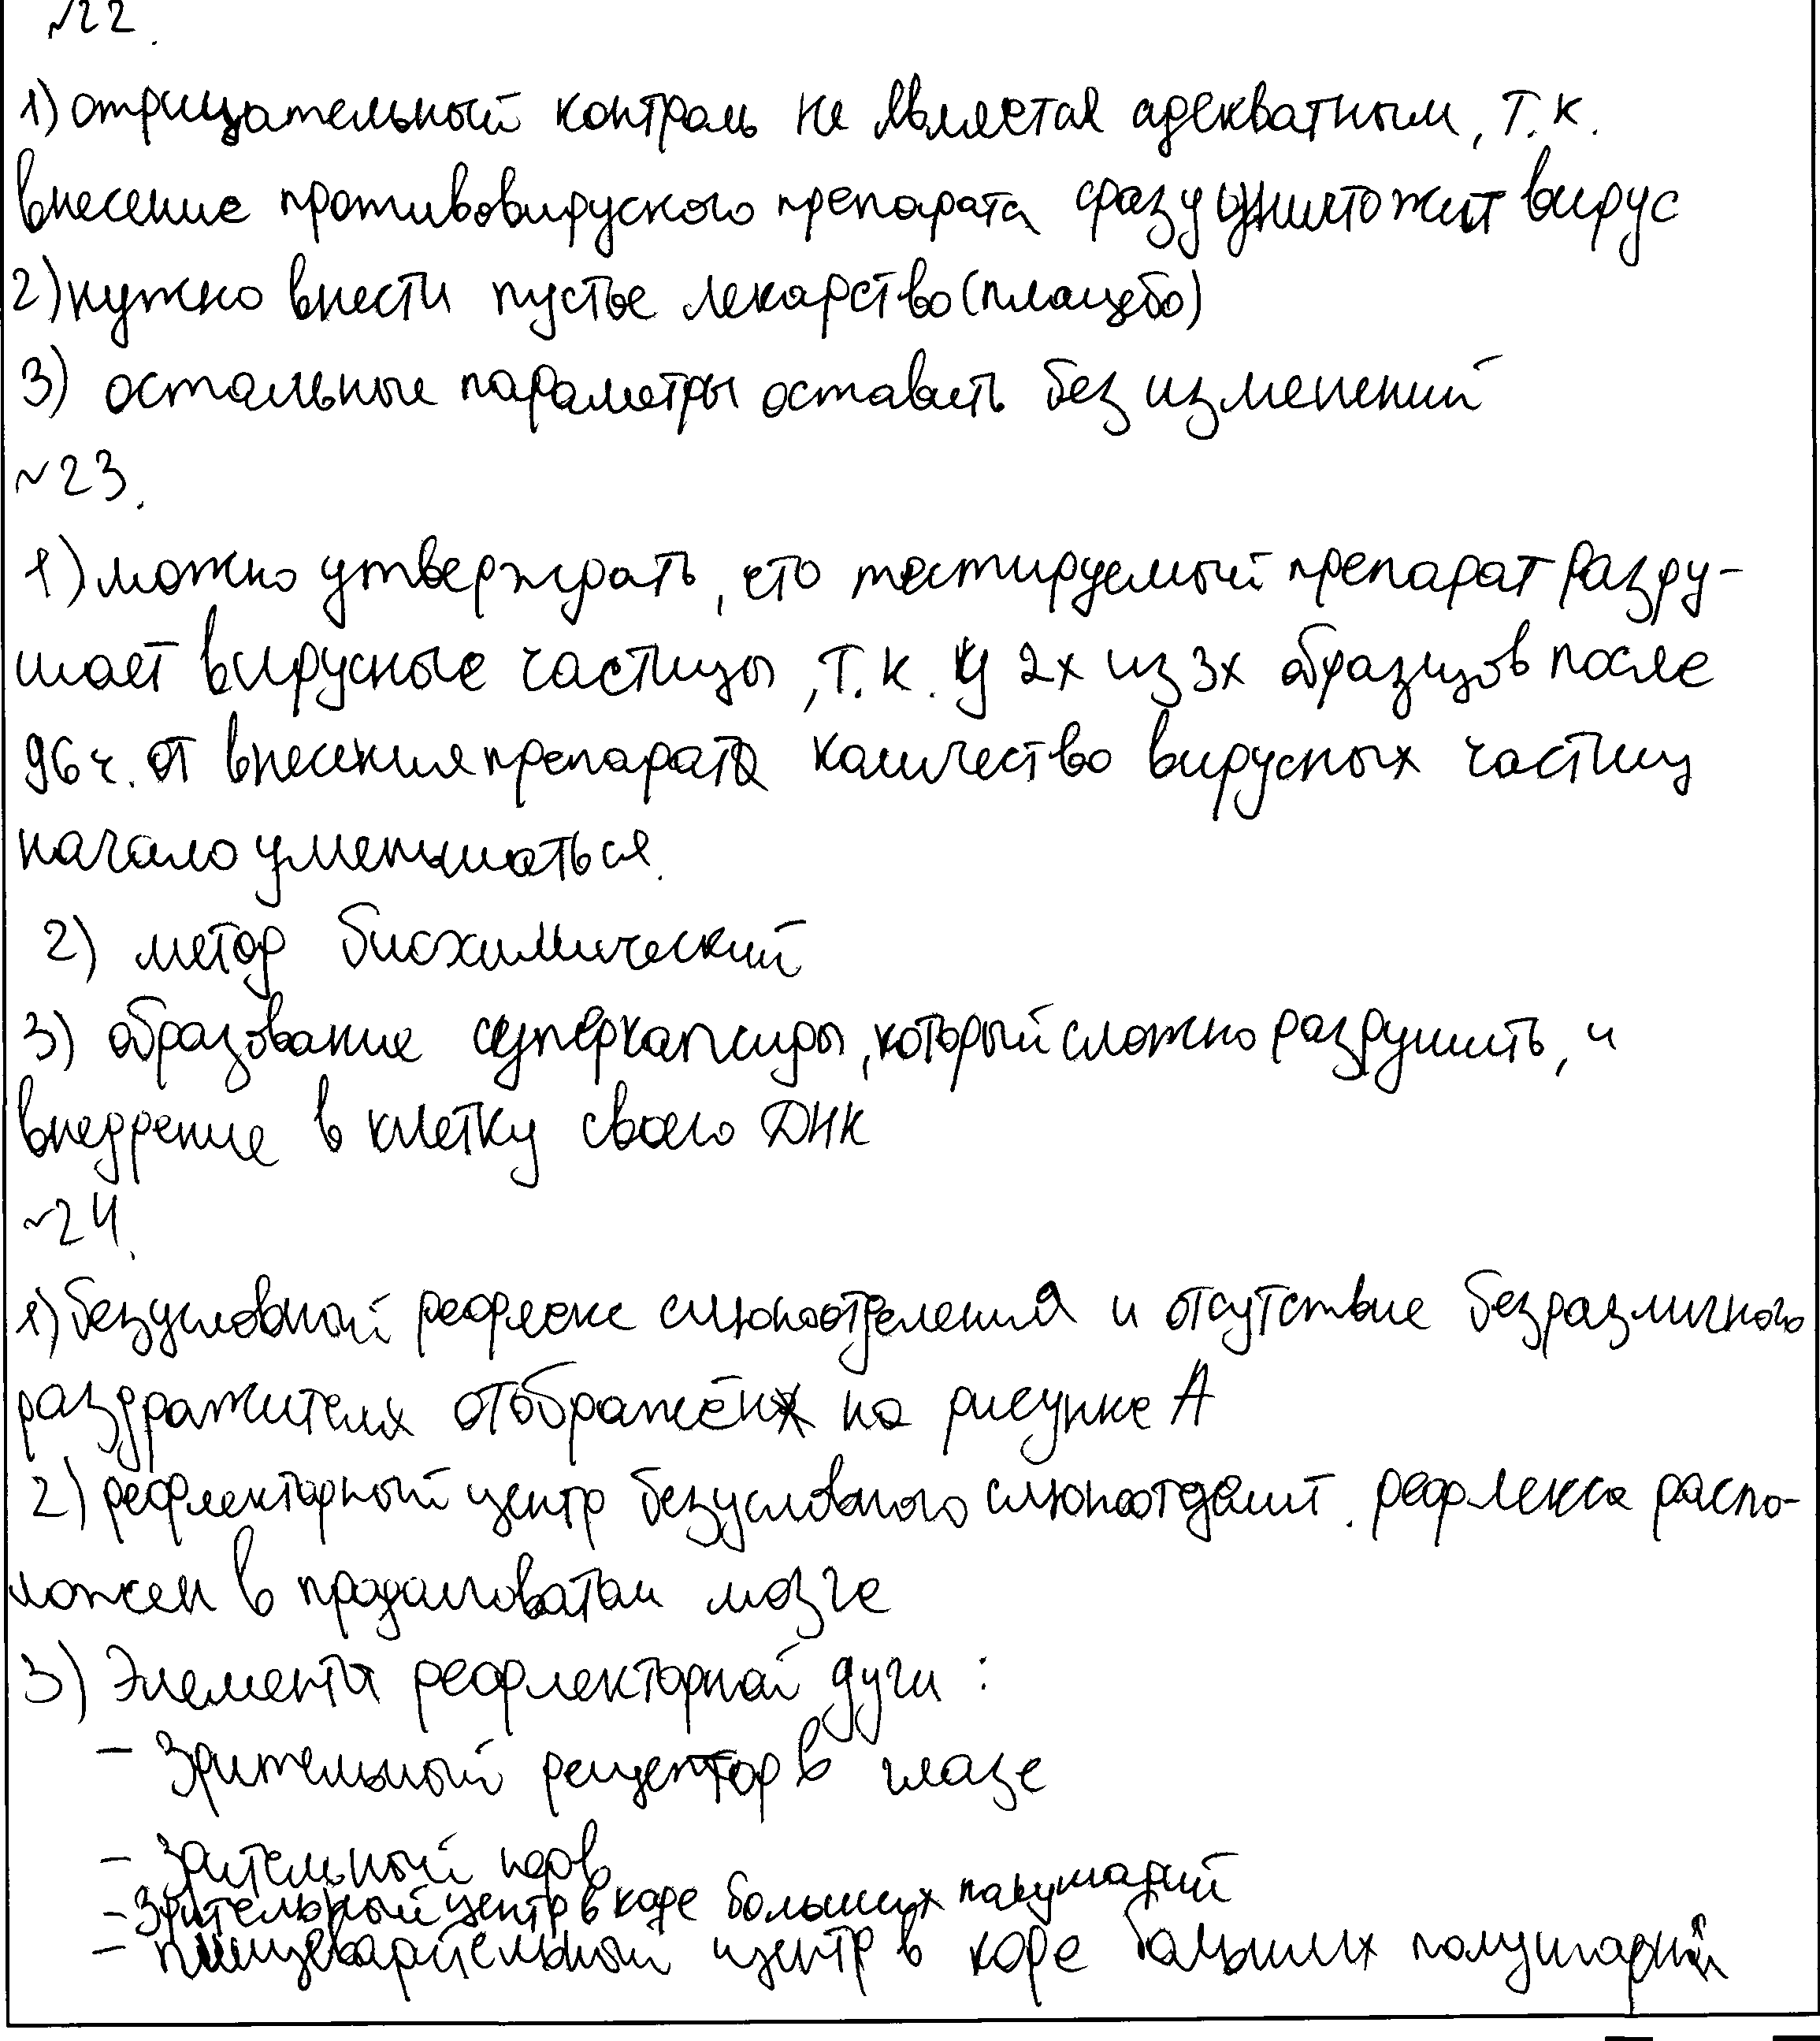 №22.
1) отрицательный контроль не является адекватным, т.к.
внесение противовируского препарата сразу уничтожит вирус
2) нужно внести пустое лекарство (плацебо)
3) остальные параметры оставить без изменений
№23.
1) можно утверждать, что тестируемый препарат разру-
шает вирусные частицы, т.к. у 2х из 3х образцов после
96 ч. от внесения препарата количество вирусных частиц
начало уменьшаться.
2) метод биохимический
3) образование суперкапсиды, который сложно разрушить, и
внедрение в клетку своего ДНК
№24.
1) безусловный рефлекс слюноотделения и отсутствие безразличного
раздражителя отображён на рисунке А
2) рефлекторный центр безусловного слюноотделит. рефлекса распо-
ложен в продолговатом мозге
3) Элементы рефлекторной дуги:
- Зрительный рецептор в глазе
- Зрительный нерв
- Зрительный центр в коре больших полушарий
- пищеварительный центр в коре больших полушарий